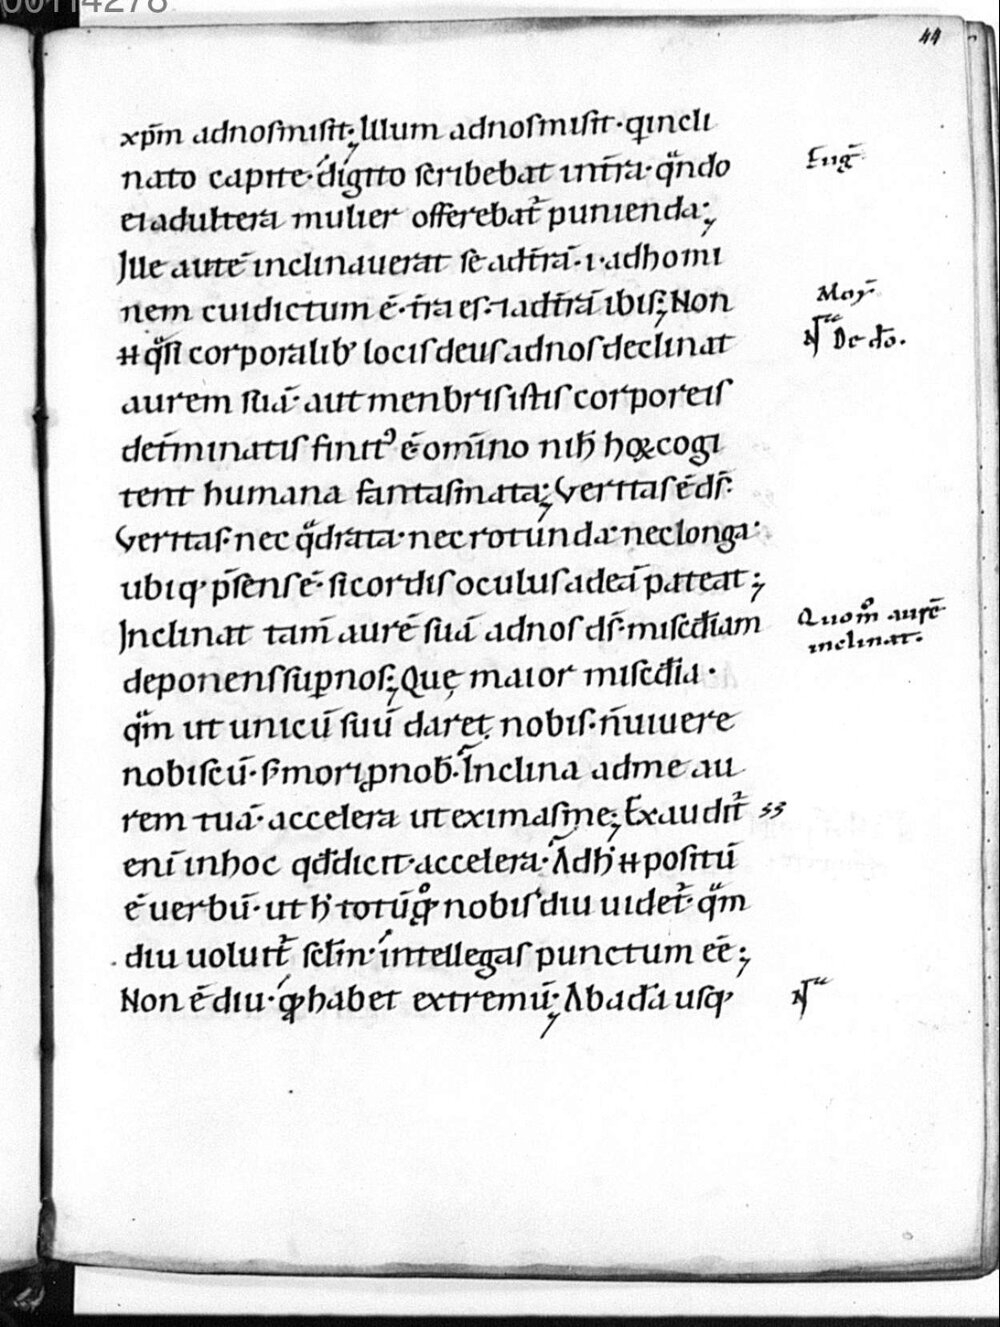 00114278
44
xp̄m adnoſmiſit; Illum adnoſmiſit · qincli
nato capite · digito ſcribebat int̄ra · qndo
Euḡ
ei adultera mulier offerebat̄ punienda;
Ille autē inclinauerat ſe adt̄rā · i · adhomi
nem cuidictum ē · t̄ra eſ · ⁊ adt̄rā ibiſ; Non
Moȳ
qſi corporalib' locif deuſ adnoſ declinat
De do.
aurem ſuā · aut menbriſ iſtiſ corporeiſ
det̄minatiſ finit᾿ ē omīno nih̄ hoc cogi
tent humana fantaſmata; Veritaſ ē dſ̄:
Veritaſ · nec qdrata · nec rotunda · nec longa ·
ubiq · p̄ſenſ ē · ſi cordiſ oculuſ adeā pateat;
Inclinat tam̄ aurē ſuā adnoſ dſ̄ · miſcd̄iam
Quom̊ aurē
inclinat.
deponenſ ſup noſ; Quę maior miſcd̄ia ·
qm ut unicū ſuū daret nobiſ · n̄ uiuere
nobiſcū · ſ; mori pnob̄ · Inclina adme au
rem tuā · accelera ut eximaſ me; Exaudit̄
enī inhoc qd̄ dicit · accelera · Adh̄ poſitū
ē uerbū · ut h̄ totū q nobiſ diu uidet̄ · qm
diu uoluit̄ ſcl̄m · intellegaſ punctum eē;
Non ē diu · q habet extremū; Abadā uſq